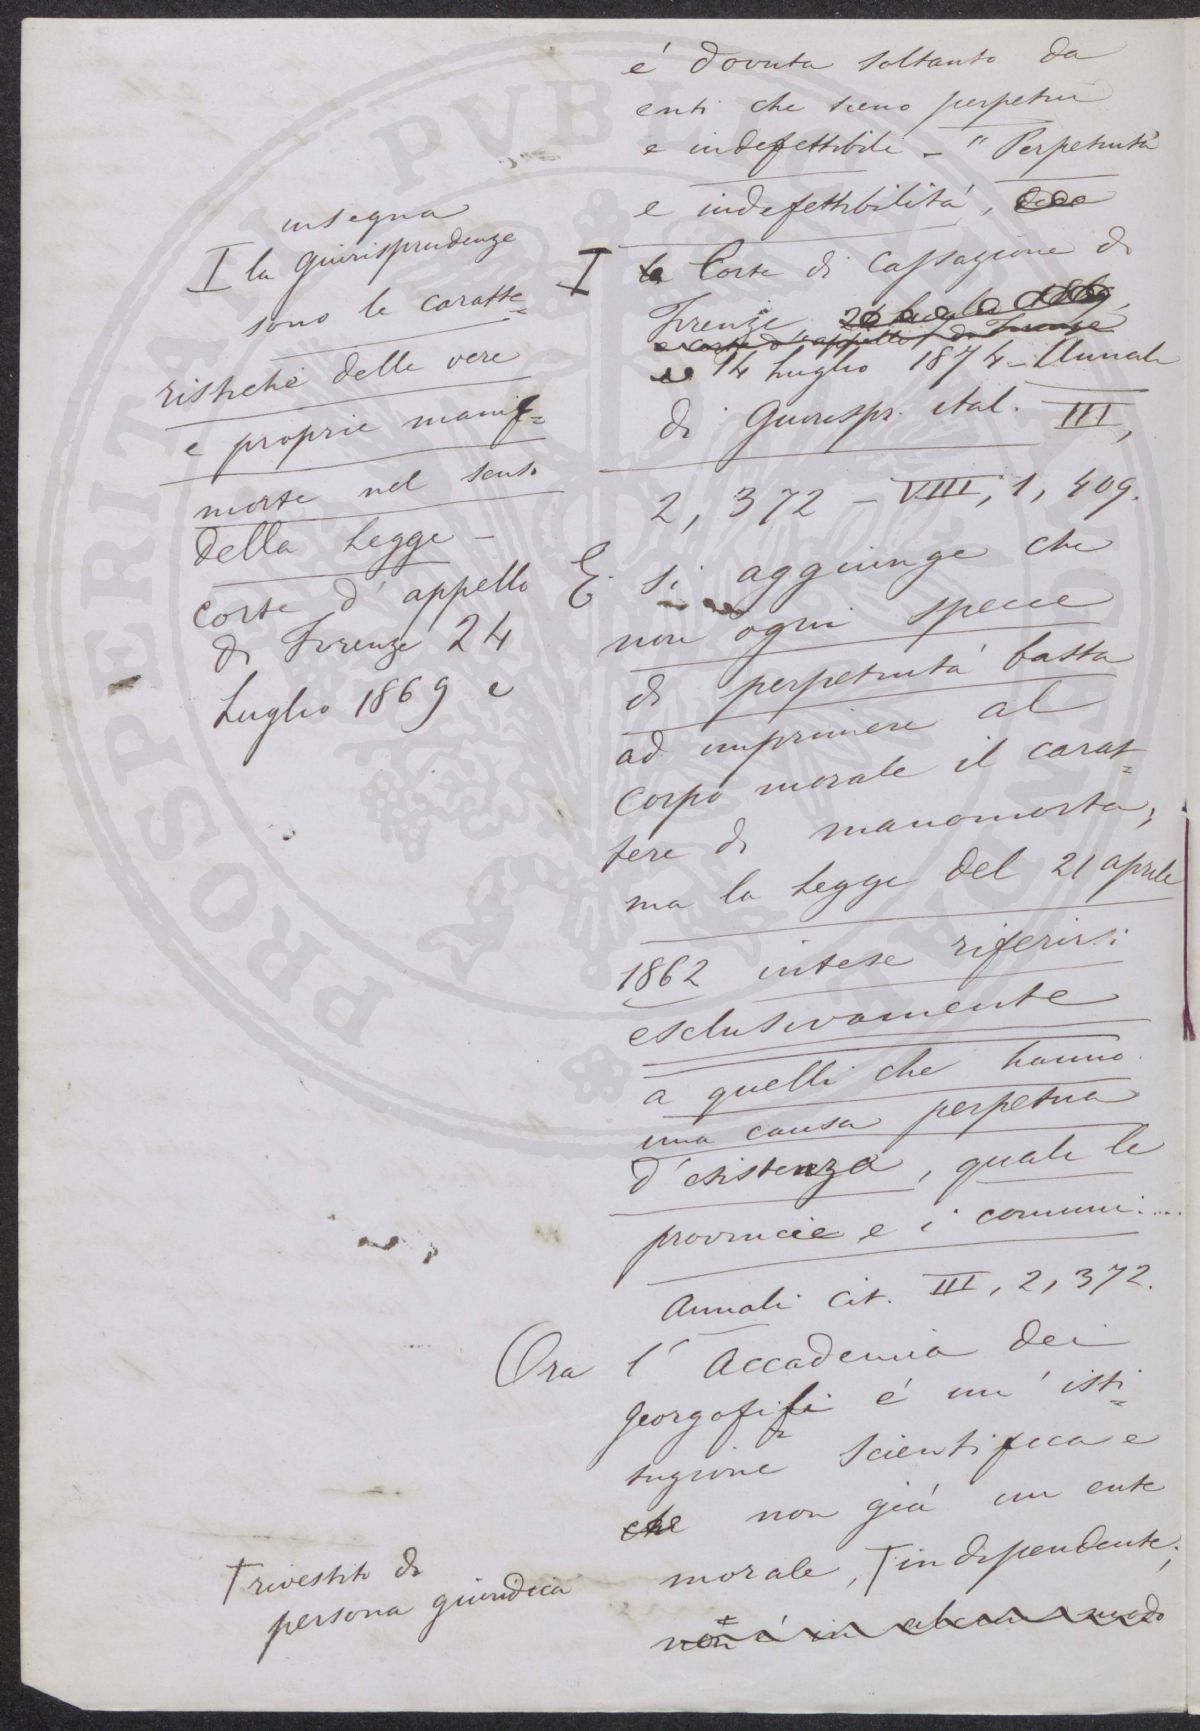 é dovuta soltanto da
enti che sieno perpetui
e indefettibili - " Perpetuità
e indefettibilità,
I la Corte di Cassazione di
Firenze
e Corte d'appello di Firenze
14 Luglio 1874 - Annali
di Giurispr. ital. III,
2, 372 - VIII, 1, 409.
E si aggiunge che
non ogni specie
di perpetuità basta
ad imprimere al
corpo morale il carat=
tere di manomorta,
ma la Legge del 21 aprile
1862 intese riferirsi
esclusivamente
a quelli che hanno
una causa perpetua
d'esistenza, quali le
provincie e i comuni....
Annali cit. III, 2, 372.
Ora l'Accademia dei
Georgofili é un'isti=
tuzione scientifica e
che non già un ente
morale, † independente;
non é in alcun modo
insegna
I la Giurisprudenza
sono le caratte=
ristiche delle vere
e proprie manif=
morte nel senso
della Legge -
Corte d'appello
di Firenze 24
Luglio 1869 e
† rivestito di
persona giuridica
PROSPERITATI PVBLICAE AVGENDAE